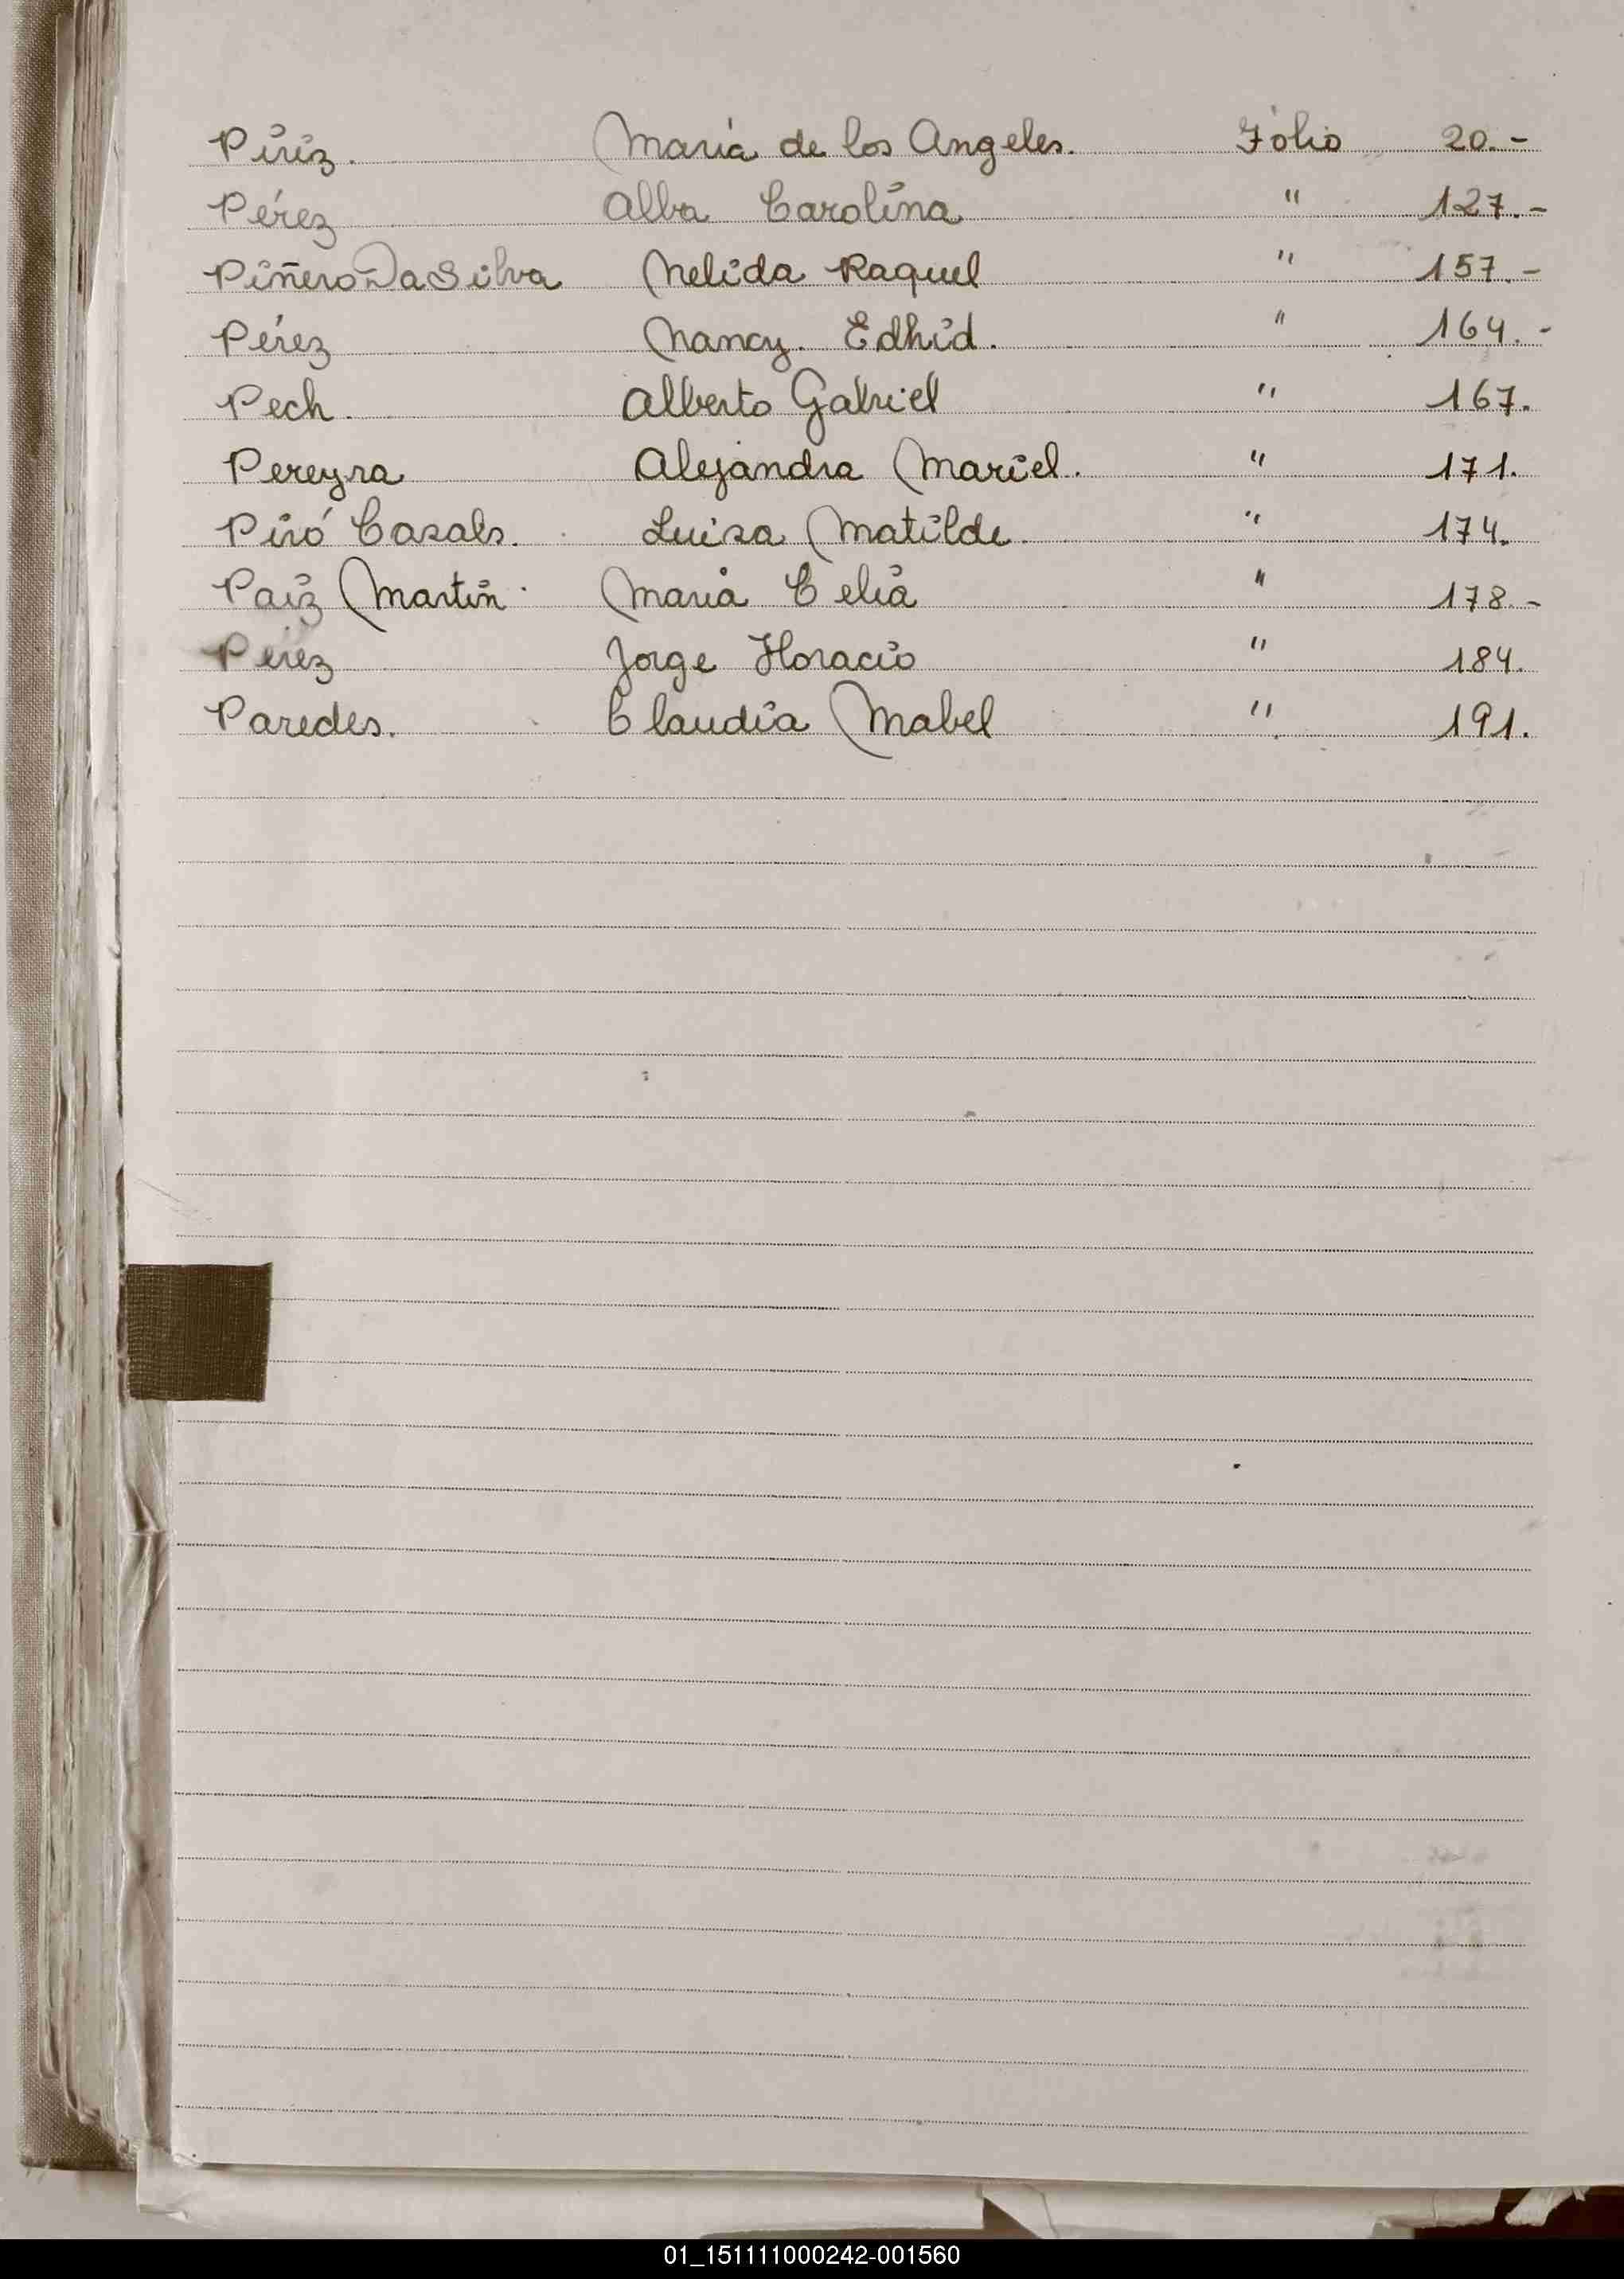 Píriz. María de los Angeles. Fólio 20.-
Pérez Alba Carolina " 127.-
Piñero Da Silva Nelida Raquel " 157.-
Pérez Nancy. Edhid. " 164.-
Pech. Alberto Gabriel " 167.
Pereyra Alejandra Mariel. " 171.
Piró Casals. Luisa Matilde. " 174.
Paiz Martin. María Celia " 178.-
Pérez Jorge Horacio " 184.
Paredes. Claudia Mabel " 191.
01_151111000242-001560